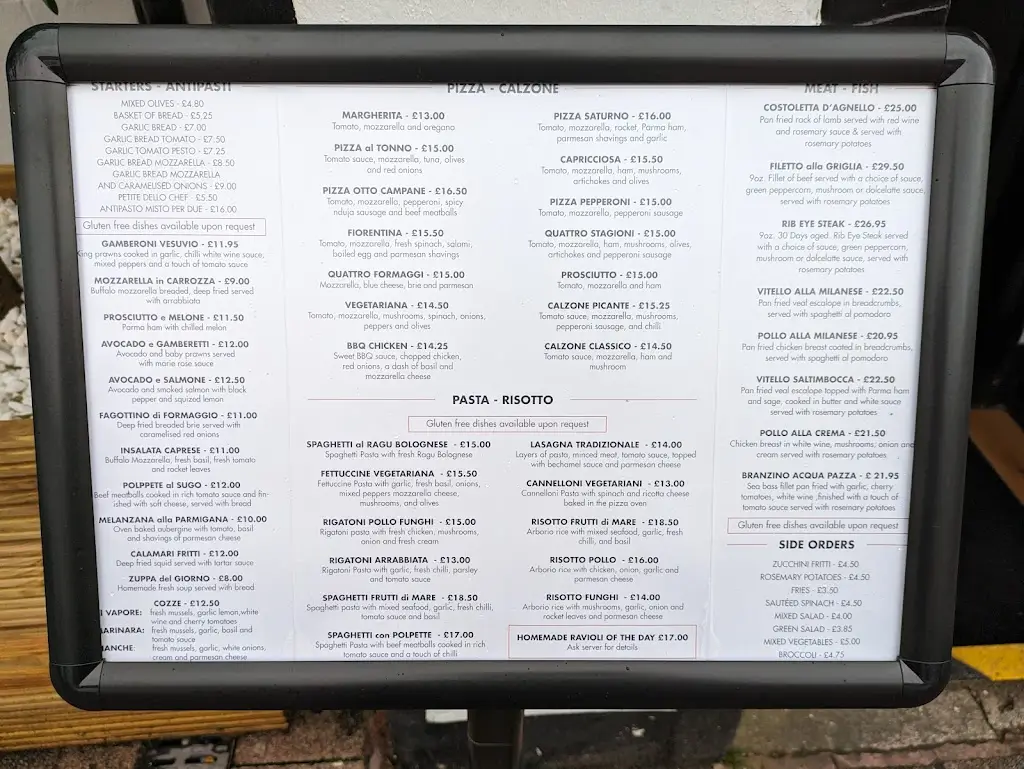 STARTERS - ANTIPASTI
MIXED OLIVES - £4.80
BASKET OF BREAD - £5.25
GARLIC BREAD - £7.00
GARLIC BREAD TOMATO - £7.50
GARLIC TOMATO PESTO - £7.25
GARLIC BREAD MOZZARELLA - £8.50
GARLIC BREAD MOZZARELLA
AND CARAMELISED ONIONS - £9.00
PETITE DELLO CHEF - £5.50
ANTIPASTO MISTO PER DUE - £16.00
Gluten free dishes available upon request
GAMBERONI VESUVIO - £11.95
King prawns cooked in garlic, chilli white wine sauce,
mixed peppers and a touch of tomato sauce
MOZZARELLA in CARROZZA - £9.00
Buffalo mozzarella breaded, deep fried served
with arrabbiata
PROSCIUTTO e MELONE - £11.50
Parma ham with chilled melon
AVOCADO e GAMBERETTI - £12.00
Avocado and baby prawns served
with marie rose sauce
AVOCADO e SALMONE - £12.50
Avocado and smoked salmon with black
pepper and squized lemon
FAGOTTINO di FORMAGGIO - £11.00
Deep fried breaded brie served with
caramelised red onions
INSALATA CAPRESE - £11.00
Buffalo Mozzarella, fresh basil, fresh tomato
and rocket leaves
POLPPETE al SUGO - £12.00
Beef meatballs cooked in rich tomato sauce and fin-
ished with soft cheese, served with bread
MELANZANA alla PARMIGANA - £10.00
Oven baked aubergine with tomato, basil
and shavings of parmesan cheese
CALAMARI FRITTI - £12.00
Deep fried squid served with tartar sauce
ZUPPA del GIORNO - £8.00
Homemade fresh soup served with bread
COZZE - £12.50
VAPORE: fresh mussels, garlic lemon,white
wine and cherry tomatoes
ARINARA: fresh mussels, garlic, basil and
tomato sauce
IANCHE: fresh mussels, garlic, white onions,
cream and parmesan cheese
PIZZA - CALZONE
MARGHERITA - £13.00
Tomato, mozzarella and oregano
PIZZA al TONNO - £15.00
Tomato sauce, mozzarella, tuna, olives
and red onions
PIZZA OTTO CAMPANE - £16.50
Tomato, mozzarella, pepperoni, spicy
nduja sausage and beef meatballs
FIORENTINA - £15.50
Tomato, mozzarella, fresh spinach, salami,
boiled egg and parmesan shavings
QUATTRO FORMAGGI - £15.00
Mozzarella, blue cheese, brie and parmesan
VEGETARIANA - £14.50
Tomato, mozzarella, mushrooms, spinach, onions,
peppers and olives
BBQ CHICKEN - £14.25
Sweet BBQ sauce, chopped chicken,
red onions, a dash of basil and
mozzarella cheese
PIZZA SATURNO - £16.00
Tomato, mozzarella, rocket, Parma ham,
parmesan shavings and garlic
CAPRICCIOSA - £15.50
Tomato, mozzarella, ham, mushrooms,
artichokes and olives
PIZZA PEPPERONI - £15.00
Tomato, mozzarella, pepperoni sausage
QUATTRO STAGIONI - £15.00
Tomato, mozzarella, ham, mushrooms, olives,
artichokes and pepperoni sausage
PROSCIUTO - £15.00
Tomato, mozzarella and ham
CALZONE PICANTE - £15.25
Tomato sauce, mozzarella, mushrooms,
pepperoni sausage, and chilli
CALZONE CLASSICO - £14.50
Tomato sauce, mozzarella, ham and
mushroom
PASTA - RISOTTO
Gluten free dishes available upon request
SPAGHETTI al RAGU BOLOGNESE - £15.00
Spaghetti Pasta with fresh Ragu Bolognese
FETTUCCINE VEGETARIANA - £15.50
Fettuccine Pasta with garlic, fresh basil, onions,
mixed peppers mozzarella cheese,
mushrooms, and olives
RIGATONI POLLO FUNGHI - £15.00
Rigatoni pasta with fresh chicken, mushrooms,
onion and fresh cream
RIGATONI ARRABBIATA - £13.00
Rigatoni Pasta with garlic, fresh chilli, parsley
and tomato sauce
SPAGHETTI FRUTTI di MARE - £18.50
Spaghetti pasta with mixed seafood, garlic, fresh chilli,
tomato sauce and basil
SPAGHETTI con POLPETTE - £17.00
Spaghetti Pasta with beef meatballs cooked in rich
tomato sauce and a touch of chilli
LASAGNA TRADIZIONALE - £14.00
Layers of pasta, minced meat, tomato sauce, topped
with bechamel sauce and parmesan cheese
CANNELLONI VEGETARIANI - £13.00
Cannelloni Pasta with spinach and ricotta cheese
baked in the pizza oven
RISOTTO FRUTTI di MARE - £18.50
Arborio rice with mixed seafood, garlic, fresh
chilli, and basil
RISOTTO POLLO - £16.00
Arborio rice with chicken, onion, garlic and
parmesan cheese
RISOTTO FUNGHI - £14.00
Arborio rice with mushrooms, garlic, onion and
rocket leaves and parmesan cheese
HOMEMADE RAVIOLI OF THE DAY £17.00
Ask server for details
MEAT - FISH
COSTOLETTA D'AGNELLO - £25.00
Pan fried rack of lamb served with red wine
and rosemary sauce & served with
rosemary potatoes
FILETTO alla GRIGLIA - £29.50
9oz. Fillet of beef served with a choice of sauce,
green peppercorn, mushroom or dolcelatte sauce,
served with rosemary potatoes
RIB EYE STEAK - £26.95
9oz. 30 Days aged. Rib Eye Steak served
with a choice of sauce, green peppercorn,
mushroom or dolcelatte sauce, served with
rosemary potatoes
VITELLO ALLA MILANESE - £22.50
Pan fried veal escalope in breadcrumbs,
served with spaghetti al pomodoro
POLLO ALLA MILANESE - £20.95
Pan fried chicken breast coated in breadcrumbs,
served with spaghetti al pomodoro
VITELLO SALTIMBOCCA - £22.50
Pan fried veal escalope topped with Parma ham
and sage, cooked in butter and white sauce
served with rosemary potatoes
POLLO ALLA CREMA - £21.50
Chicken breast in white wine, mushrooms, onion and
cream served with rosemary potatoes.
BRANZINO ACQUA PAZZA - £ 21.95
Sea bass fillet pan fried with garlic, cherry
tomatoes, white wine ,finished with a touch of
tomato sauce served with rosemary potatoes
Gluten free dishes available upon request
SIDE ORDERS
ZUCCHINI FRITTI - £4.50
ROSEMARY POTATOES - £4.50
FRIES - £3.50
SAUTÉED SPINACH - £4.50
MIXED SALAD - £4.00
GREEN SALAD - £3.85
MIXED VEGETABLES - £5.00
BROCCOLI - £4.75